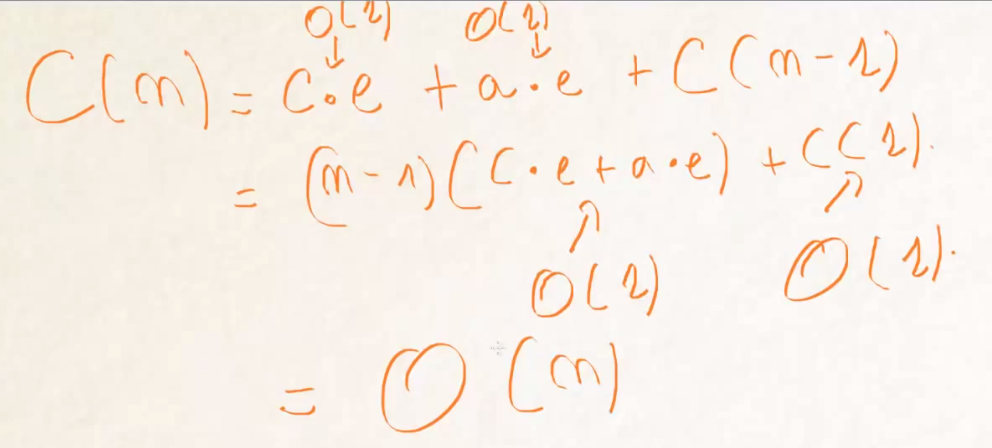 O(1) O(1)
↓ ↓
C(n) = c·e + a·e + C(n-1)
= (n-1)(c·e + a·e) + C(1).
↑ ↑
O(1) O(1).
= O(n)